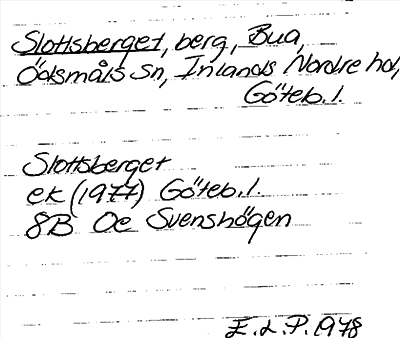 Slottsberget, berg, Bua,
Ödsmåls sn, Inlands Nordre hd,
Göteb. l.
Slottsberget
ek (1977) Göteb. l.
8B Oe Svenshögen
E. L. P. 1978